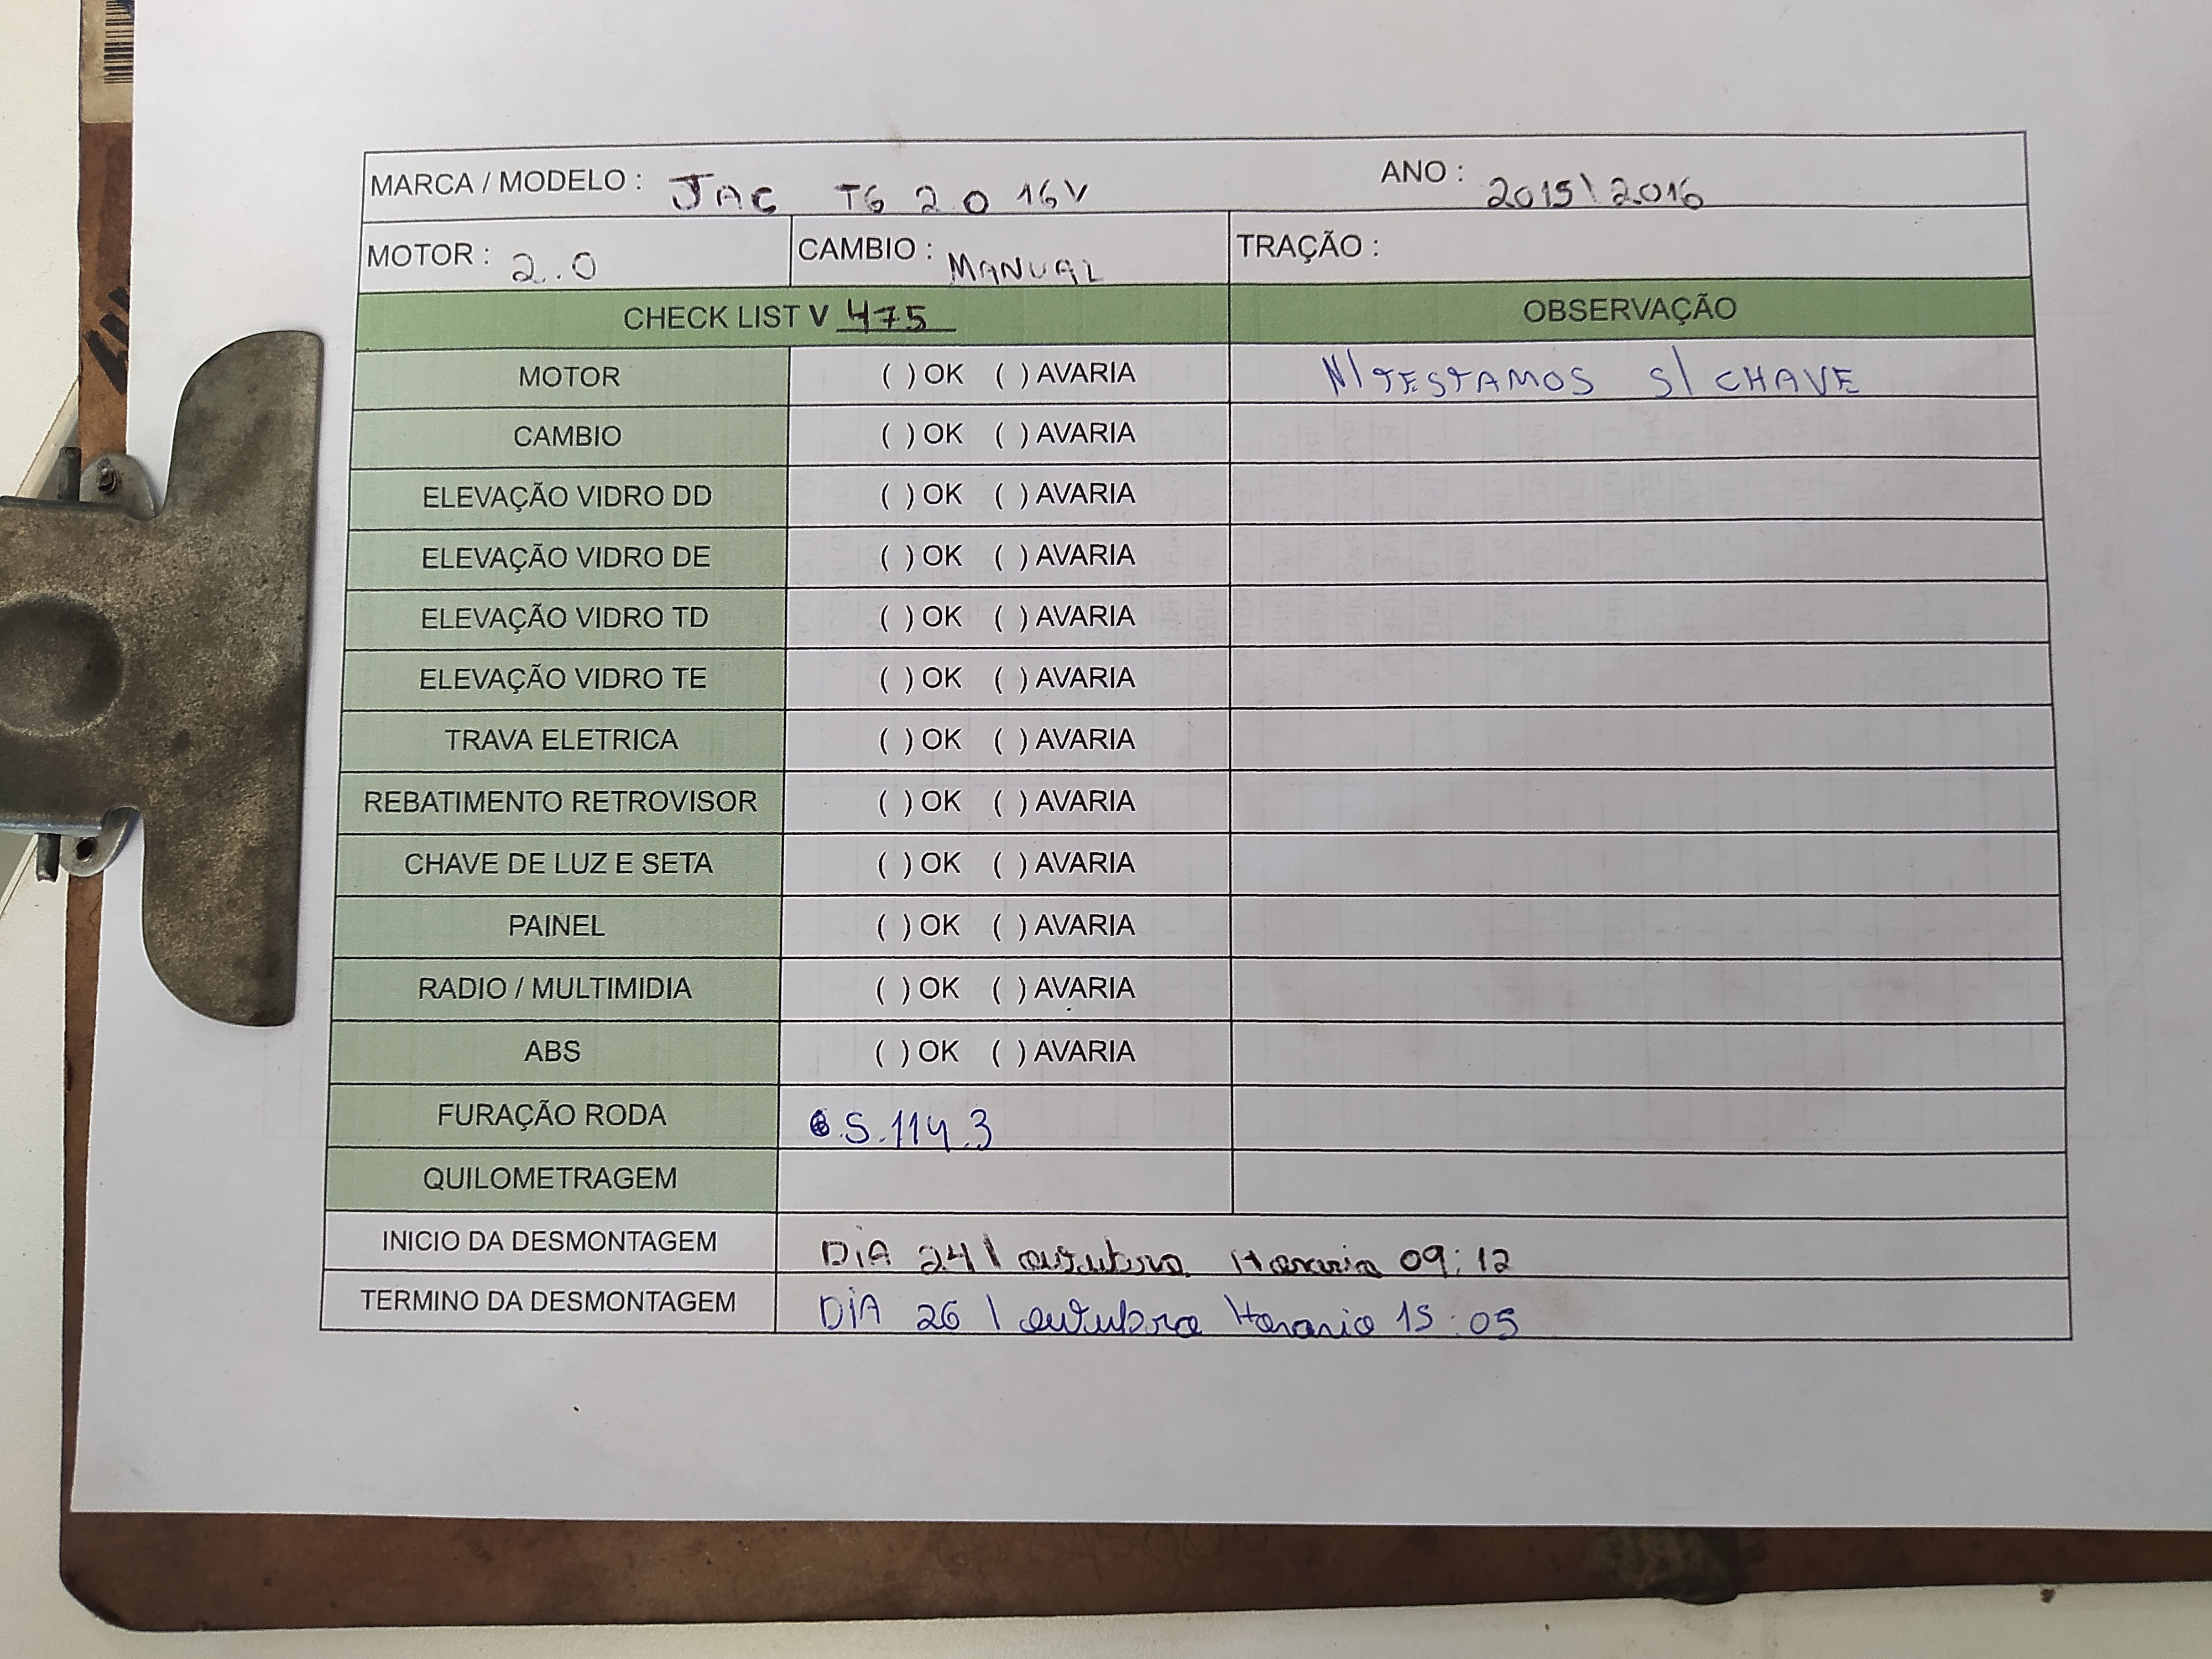 MARCA / MODELO : JAC T6 2.0 16V ANO : 2015\2016
MOTOR : 2.0 CAMBIO : MANUAL TRAÇÃO :
CHECK LIST V 475 OBSERVAÇÃO
MOTOR ( ) OK ( ) AVARIA N/TESTAMOS S/ CHAVE
CAMBIO ( ) OK ( ) AVARIA
ELEVAÇÃO VIDRO DD ( ) OK ( ) AVARIA
ELEVAÇÃO VIDRO DE ( ) OK ( ) AVARIA
ELEVAÇÃO VIDRO TD ( ) OK ( ) AVARIA
ELEVAÇÃO VIDRO TE ( ) OK ( ) AVARIA
TRAVA ELETRICA ( ) OK ( ) AVARIA
REBATIMENTO RETROVISOR ( ) OK ( ) AVARIA
CHAVE DE LUZ E SETA ( ) OK ( ) AVARIA
PAINEL ( ) OK ( ) AVARIA
RADIO / MULTIMIDIA ( ) OK ( ) AVARIA
ABS ( ) OK ( ) AVARIA
FURAÇÃO RODA 5.114.3
QUILOMETRAGEM
INICIO DA DESMONTAGEM DIA 24 \ outubro Horario 09:12
TERMINO DA DESMONTAGEM DIA 26 \ outubro Horario 15:05